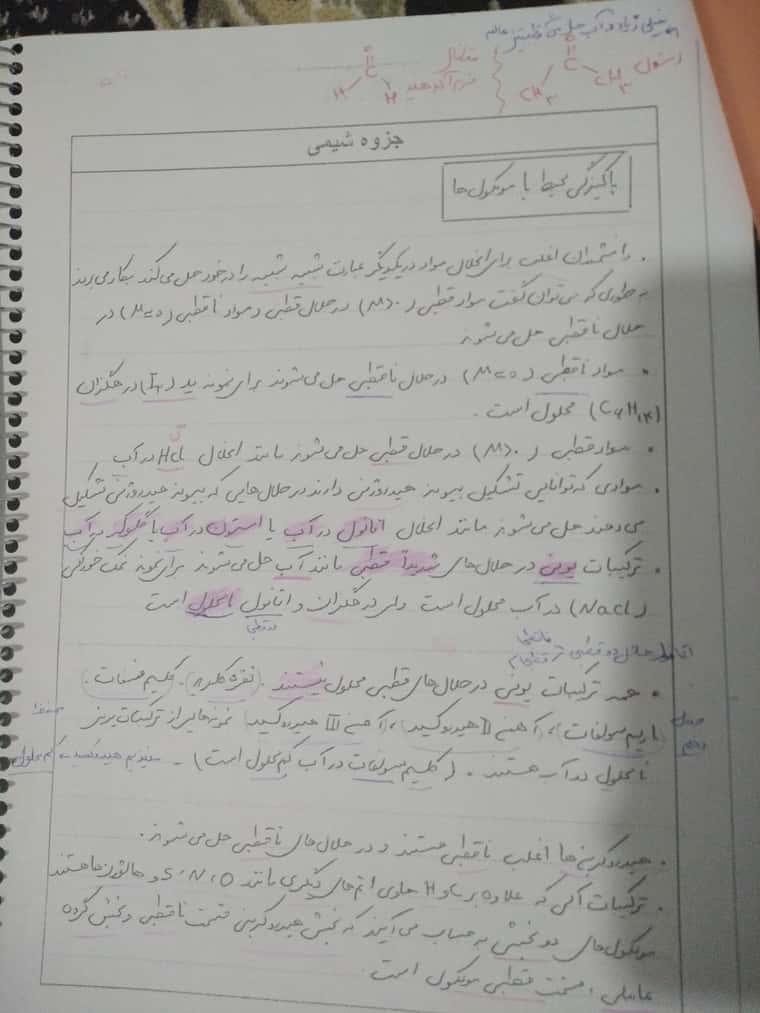 خیلی زیاد در آب حل می‌شن
استون
O
C
CH3
CH3
متانال
فرمالدهید
O
C
H
H
جزوه شیمی
پاکیزگی محیط با مولکول‌ها
• دانشمندان اغلب برای انحلال مواد در یکدیگر عبارت شبیه شبیه را در خود حل می‌کند بکار می‌برند
به طوری که می‌توان گفت مواد قطبی (μ>0) در حلال قطبی و مواد ناقطبی (μ=0) در
حلال ناقطبی حل می‌شوند
• مواد ناقطبی (μ=0) در حلال ناقطبی حل می‌شوند برای نمونه ید (I2) در هگزان
(C6H14) محلول است .
• مواد قطبی (μ>0) در حلال قطبی حل می‌شوند مانند انحلال HCl در آب
• موادی که توانایی تشکیل پیوند هیدروژنی دارند در حلال‌هایی که پیوند هیدروژنی تشکیل
می‌دهند حل می‌شوند مانند انحلال اتانول در آب یا استون در آب یا گلوکز در آب
• ترکیبات یونی در حلال‌های شدیداً قطبی مانند آب حل می‌شوند برای نمونه نمک خوراکی
(NaCl) در آب محلول است ولی در هگزان و اتانول نامحلول است
قطبی
اتانول حلال دو قطبی
• همه ترکیبات یونی در حلال‌های قطبی محلول نیستند . (نقره کلرید) . کلیم فسفات .
باریم سولفات ، (آهن II هیدروکسید) ، (آهن III هیدروکسید) نمونه‌هایی از ترکیبات یونی
جدول
دهم
حفظ
نامحلول در آب هستند . (کلیم سولفات در آب کم محلول است) - منیزیم هیدروکسید کم محلول
• هیدروکربن‌ها اغلب ناقطبی هستند و در حلال‌های ناقطبی حل می‌شوند .
• ترکیبات آلی که علاوه بر C و H حاوی اتم‌های دیگری مانند O ، N ، S و هالوژن‌ها هستند
مولکول‌های دو بخشی به حساب می‌آیند که بخش هیدروکربنی قسمت ناقطبی و بخش گروه
عاملی ، قسمت قطبی مولکول است .